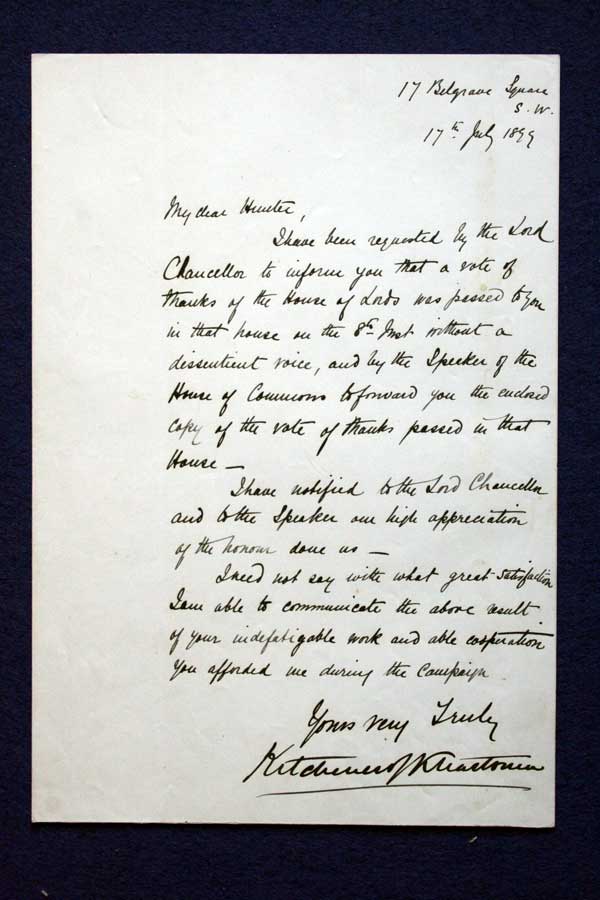 17 Belgrave Square
S.W.
17th July 1899
My dear Hunter,
I have been requested by the Lord
Chancellor to inform you that a vote of
thanks of the House of Lords was passed to you
in that house on the 8th Inst without a
dissentient voice, and by the Speaker of the
House of Commons to forward you the enclosed
copy of the vote of thanks passed in that
House —
I have notified to the Lord Chancellor
and to the Speaker our high appreciation
of the honour done us —
I need not say with what great satisfaction
I am able to communicate the above result
of your indefatigable work and able cooperation
you afforded me during the campaign
Yours very Truly
Kitchener of Khartoum